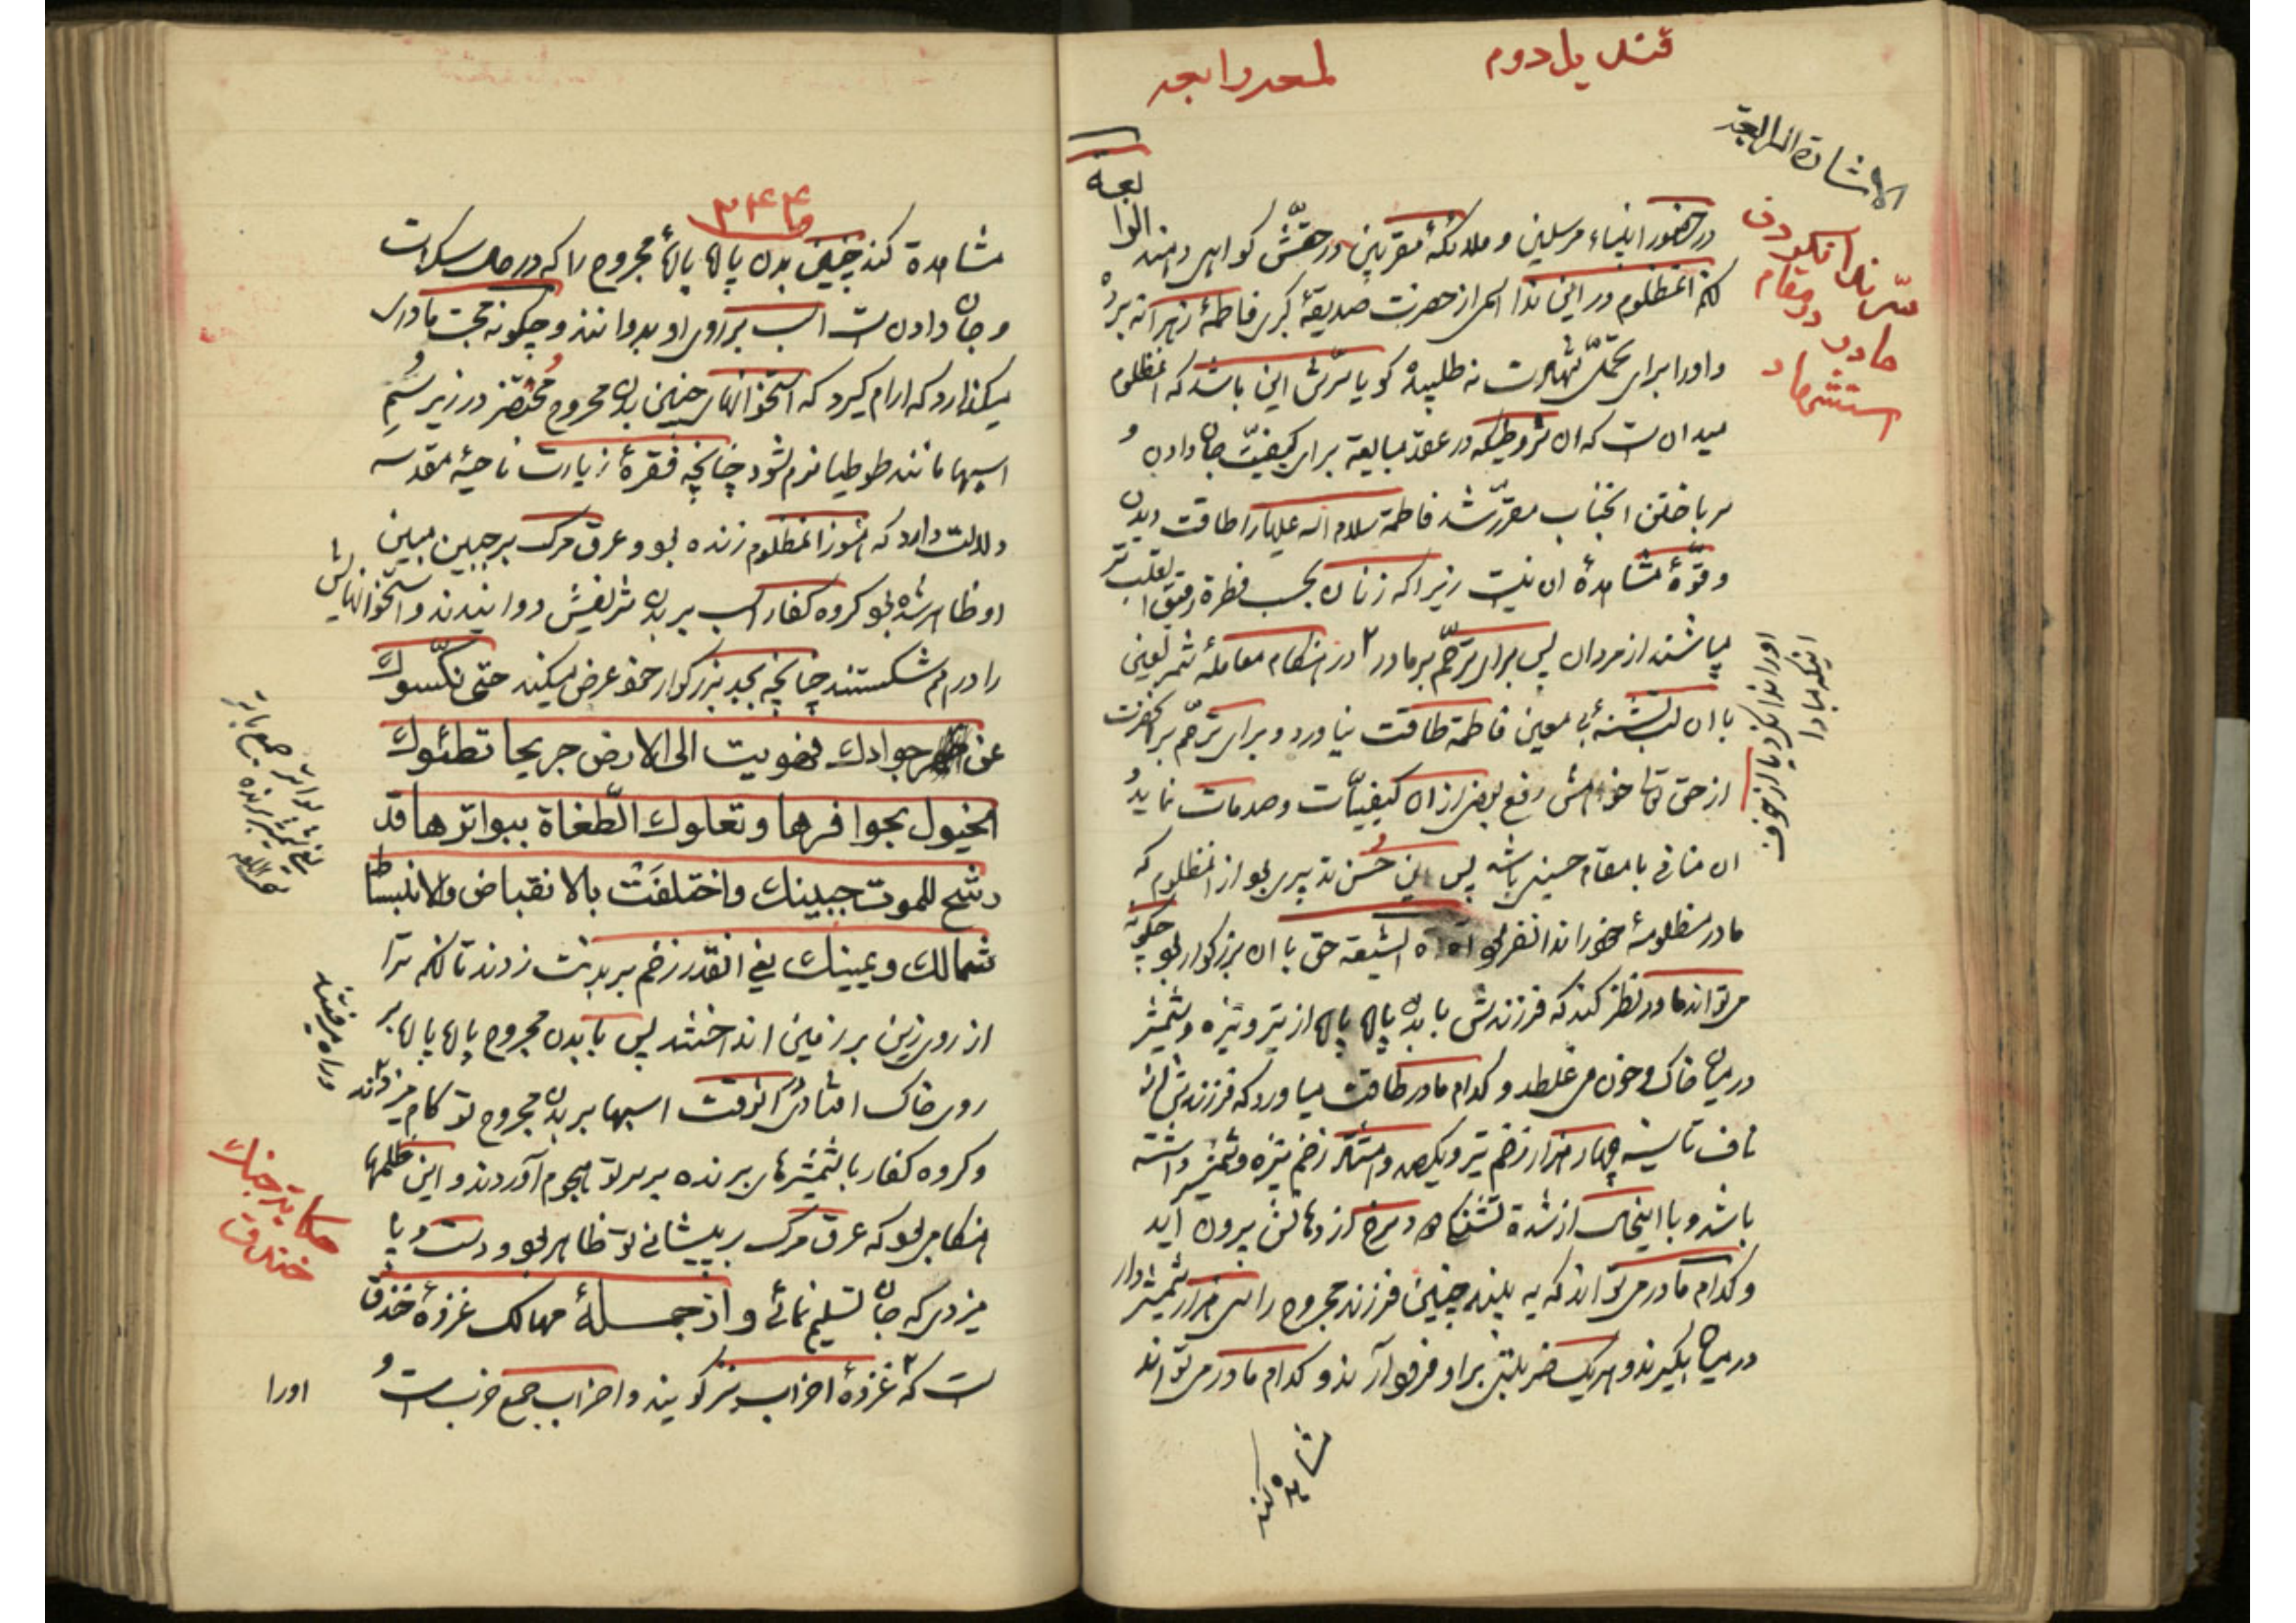 قندیل دوم
لمعه رابعه
الاشارة الرابعة
در حضور انبیاء مرسلین و ملائکهٔ مقربین در حقش کواهی دهند
لکن انمظلوم در این ندا اسمی از حضرت صدیقهٔ کبری فاطمهٔ زهرا نه برد
و او را برای تحمّل شهادت نه طلبید کویا سرّش این باشد که انمظلوم
میدانست که ان شروطیکه در عقد مبایعة برای کیفیّت جان دادن و
سر باختن انجناب مقرّر شد فاطمة سلام الله علیها را طاقت دیدن
و قوّهٔ مشاهدهٔ ان نیست زیرا که زنان بحسب فطرة رقیق القلب تر
میباشند از مردان پس برای ترحّم بر مادر در هنکام معاملهٔ شمر لعین
با ان لب تشنهٔ بی معین فاطمة طاقت نیاورد و برای ترحّم بر انحضرت
از حق تعالی خواهش رفع بعضی از ان کیفیّات و صدمات نماید و
ان منافی با مقام حسینی باشد پس این حسن تدبیری بود از انمظلوم که
مادر مظلومهٔ خود را ندا نفرمود آه آه ایشیعه حق با ان بزرکوار بود چکونه
می تواند مادر نظر کند که فرزندش با بدن پاره پاره از تیر و نیزه و شمشیر
در میان خاک و خون می غلطد و کدام مادر طاقت میاورد که فرزندش از
ناف تا سینه چهار هزار زخم تیر و یکصد و هشتاد زخم نیزه و شمشیر داشته
باشد و با اینحال از شدة تشنکی دود سرخ از دهانش بیرون آید
و کدام مادر می تواند که به بیند چنین فرزند مجروح را سی هزار شمشیر دار
در میان بکیرند و هر یک ضربتی بر او فرود آرند و کدام مادر می تواند
مشاهده کند
سرّ ندا نکردن
مادر در مقام
استشهاد
اینکه مبادا
او را ندا نکرد یا از خوف
۳۴۴
مشاهدة کند چنین بدن پاره پارهٔ مجروح را که در حال سکرات
و جان دادنست اسب بر روی او بدوانند و چکونه محبت مادری
میکذارد که ارام کیرد که استخوانهای چنین بدن مجروح و محتضر در زیر سُمِ
اسبها مانند طوطیا نرم شود چنانچه فقرهٔ زیارت ناحیهٔ مقدسه
دلالت دارد که هنوز انمظلوم زنده بود و عرق مرک بر جبین مبین
او ظاهر شده بود کروه کفار اسب بر بدن شریفش دوانیدند و استخوانهایش
را درهم شکستند چنانچه بجد بزرکوار خود عرض میکند حتی نکّسوك
عن جوادك فهویت الی الارض جریحا تطئوك
الخیول بحوافرها و تعلوك الطّغاة ببواترها قد
رشح للموت جبینك و اختلفَتْ بالانقباض و الانبساط
شمالك و یمینك یعنی انقدر زخم بر بدنت زدند تا انکه ترا
از روی زین بر زمین انداختند پس با بدن مجروح پاره پاره بر
روی خاک افتادی در انوقت اسبها بر بدن مجروح تو کام میزدند
و کروه کفار با شمشیرهای برنده بر سر تو هجوم آوردند و این ظلمها
هنکامی بود که عرق مرک بر پیشانی تو ظاهر بود و دست و پا
میزدی که جان تسلیم نمائی و از جملهٔ مهالک غزوهٔ خندق
است که غزوهٔ احزاب نیز کویند و احزاب جمع حزب است و
او را
و راه میرفتند
حکایت جنك
خندق